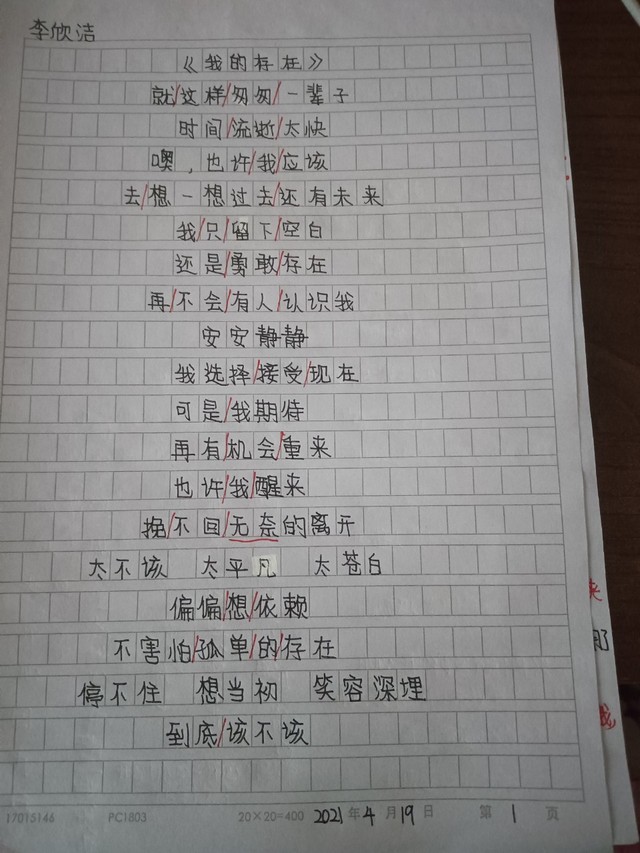 李欣洁
《我的存在》
就/这样/匆匆/一辈子
时间/流逝/太快
噢，也许/我/应该
去/想一想过去/还有未来
我/只/留下/空白
还是/勇敢/存在
再/不会/有人/认识我
安安静静
我选择/接受/现在
可是/我期待
再有/机会/重来
也许/我/醒来
挽/不回/无奈的离开
太不该 太平凡 太苍白
偏偏/想/依赖
不害怕/孤单/的/存在
停不住 想当初 笑容深埋
到底/该不该
17015146 PC1803 20×20=400 2021年4月19日 第1页
来
那
我